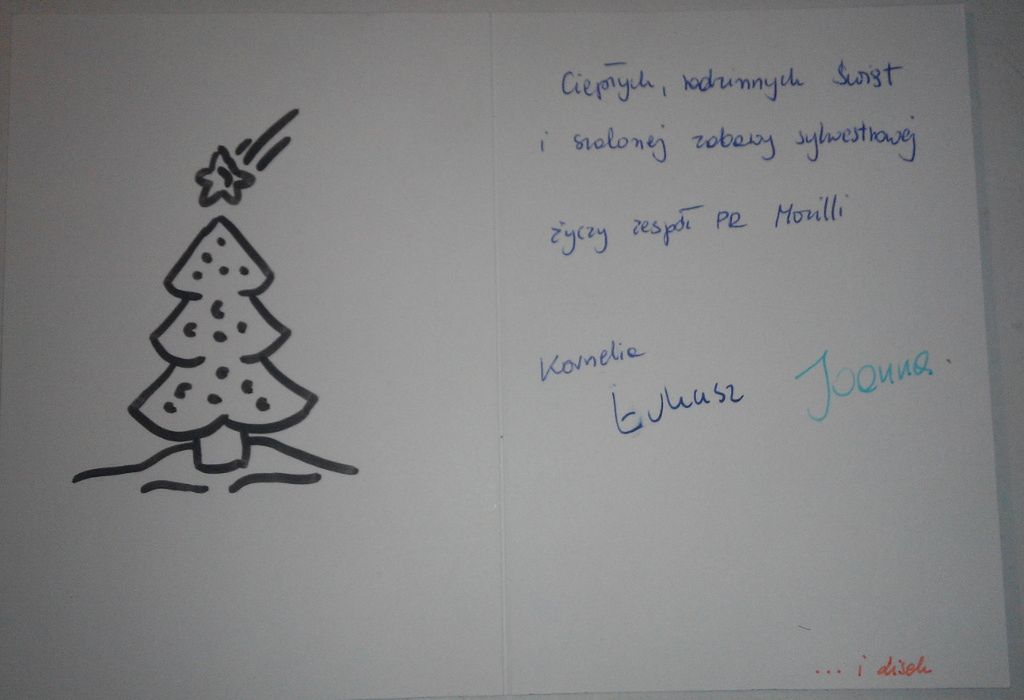 Ciepłych, rodzinnych Świąt
i szalonej zabawy sylwestrowej
życzy zespół PR Mozilli
Kornelia
Łukasz Joanna
... i disek